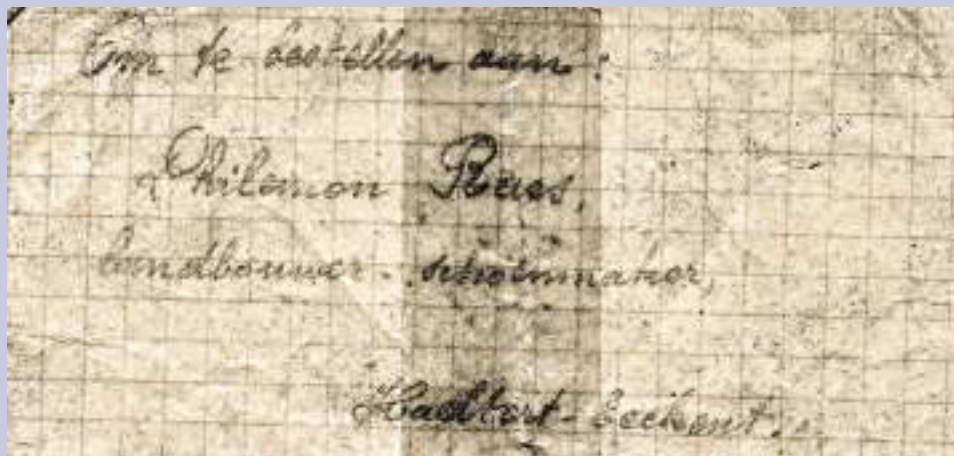 Om te bestellen aan:
Philemon Raes,
landbouwer - schoenmaker,
Haaltert-Eeckent.